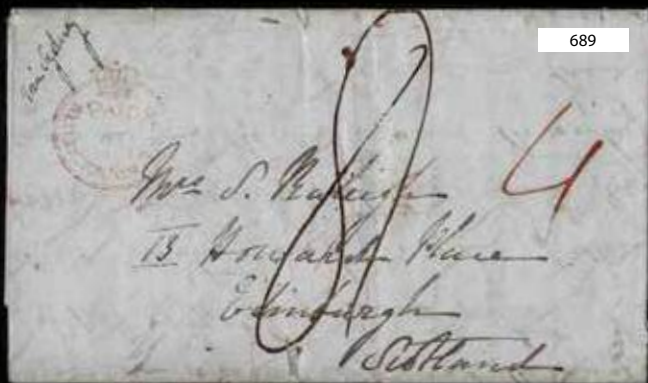 689
via Sydney
PAID
AT
4
Mrs S. Raleigh
13 Howard Place
Edinburgh
Scotland
8